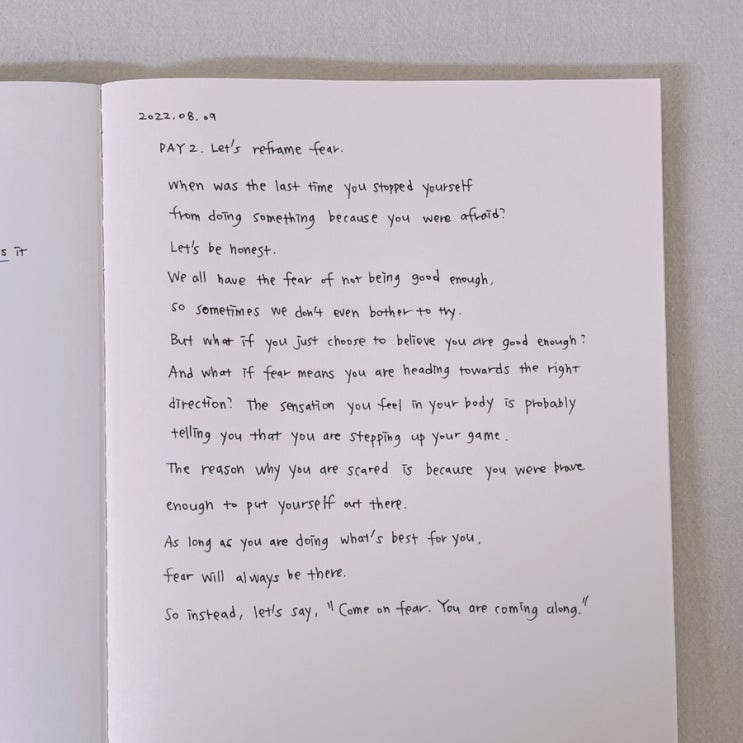 s it
2022.08.09
DAY 2. Let's reframe fear.
When was the last time you stopped yourself
from doing something because you were afraid?
Let's be honest.
We all have the fear of not being good enough,
so sometimes we don't even bother to try.
But what if you just choose to believe you are good enough?
And what if fear means you are heading towards the right
direction? The sensation you feel in your body is probably
telling you that you are stepping up your game.
The reason why you are scared is because you were brave
enough to put yourself out there.
As long as you are doing what's best for you,
fear will always be there.
So instead, let's say, "Come on fear. You are coming along."